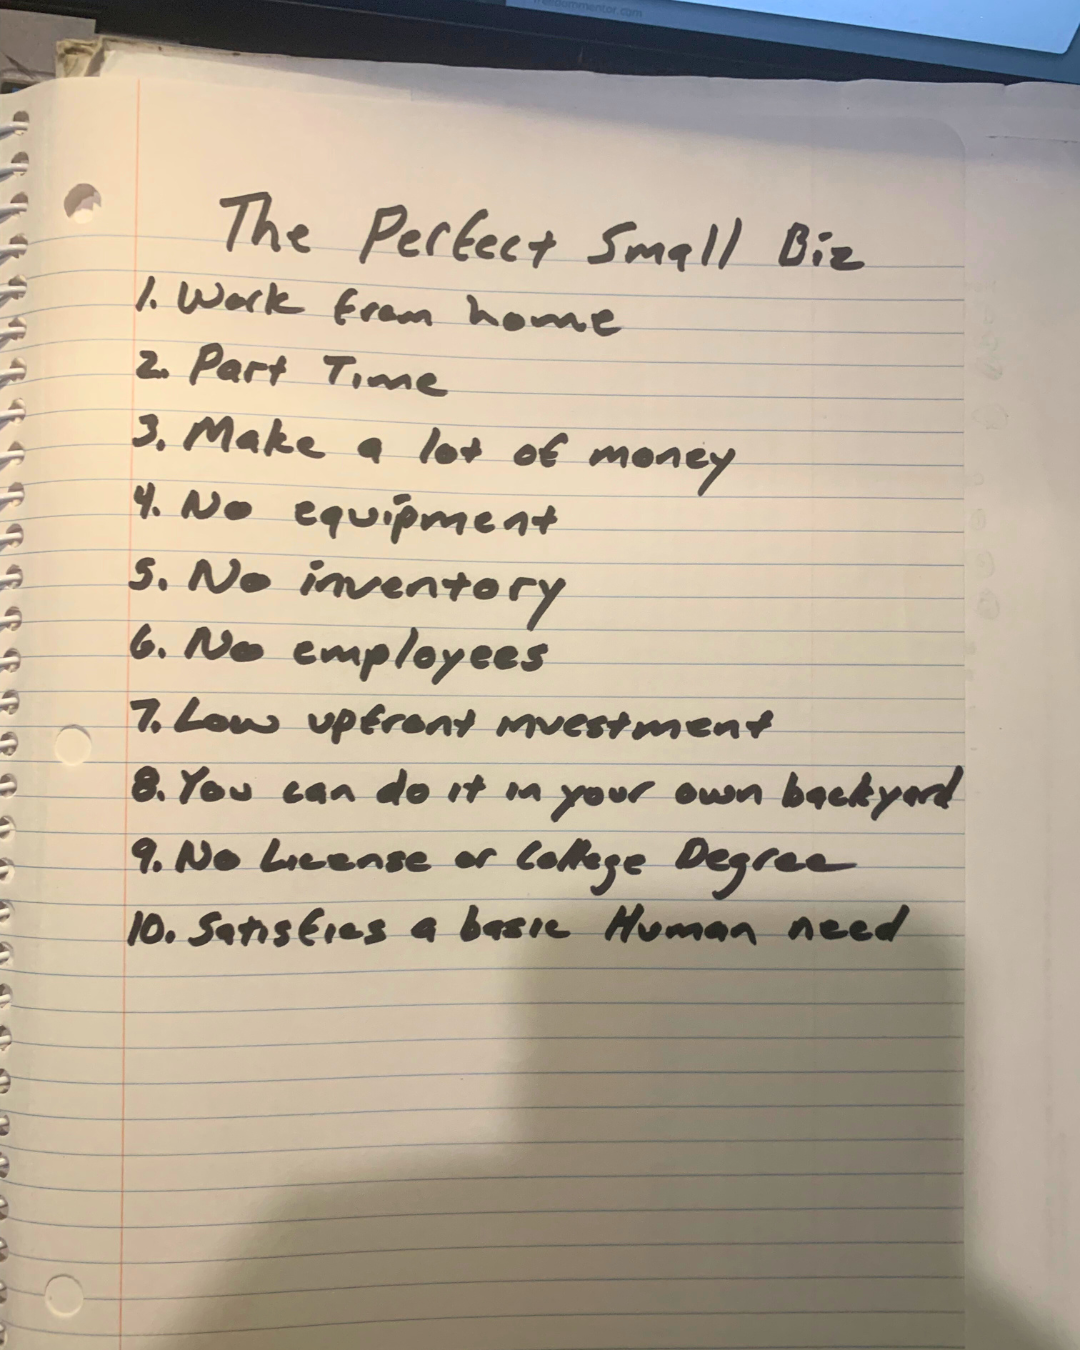 The Perfect Small Biz
1. Work from home
2. Part Time
3. Make a lot of money
4. No equipment
5. No inventory
6. No employees
7. Low upfront investment
8. You can do it in your own backyard
9. No License or College Degree
10. Satisfies a basic Human need